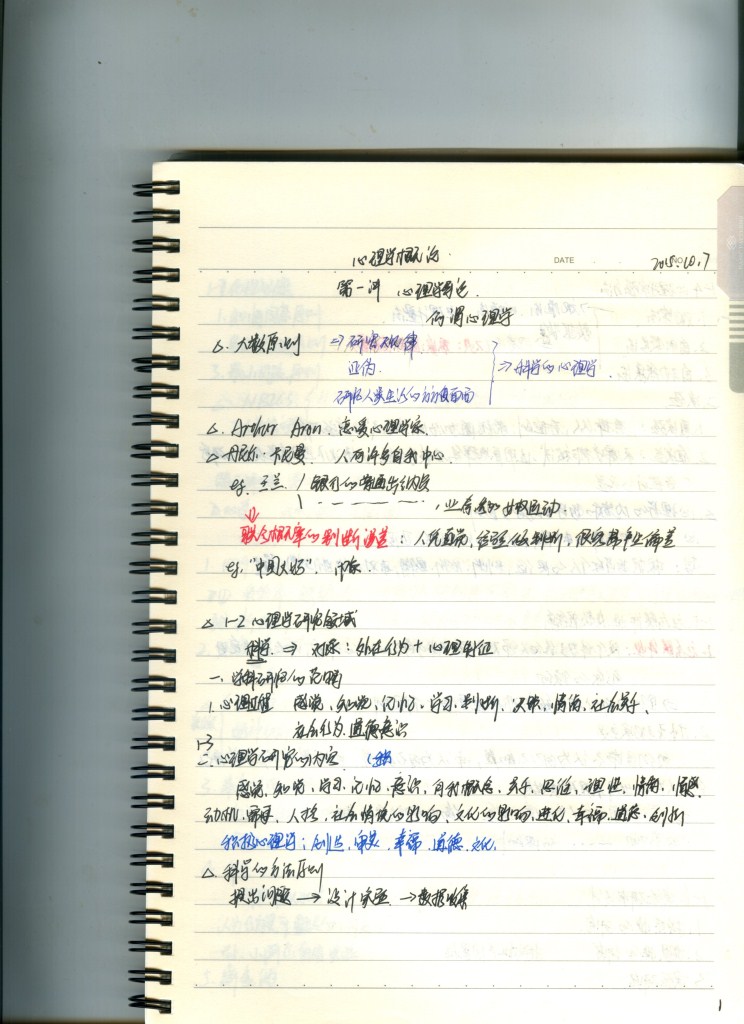 心理学概论
DATE 2015.10.7
第一讲 心理学导论
何谓心理学
△. 大数原则 → 研究规律
证伪 ⇒ 科学的心理学
研究人类生活的方方面面
△. Arthur Aron. 恋爱心理学家
△. 丹尼尔·卡尼曼. 人有许多自我中心.
eg. 王兰 银行的普通出纳员
业 女权运动
联合概率的判断误差: 人凭直觉, 经验做判断, 很容易产生偏差
eg. "中国大妈". 印象.
△ 1-2 心理学研究领域
科学 ⇒ 对象: 外在行为 + 心理特征
一. 学科研究的范畴
1. 心理过程 感觉、知觉、记忆、学习、判断、决策、情绪、社会关系、
社会行为、道德意识
1-3
二. 心理学研究的内容
感觉, 知觉, 学习, 记忆, 意识, 自我概念, 关系, 思维, 理性, 情绪, 情感,
动机, 需要, 人格, 社会情境的影响, 文化的影响, 进化, 幸福, 道德, 创新
积极心理学: 创造, 审美, 幸福, 道德, 文化.
△. 科学的方法原则
提出问题 → 设计实验 → 数据收集
1